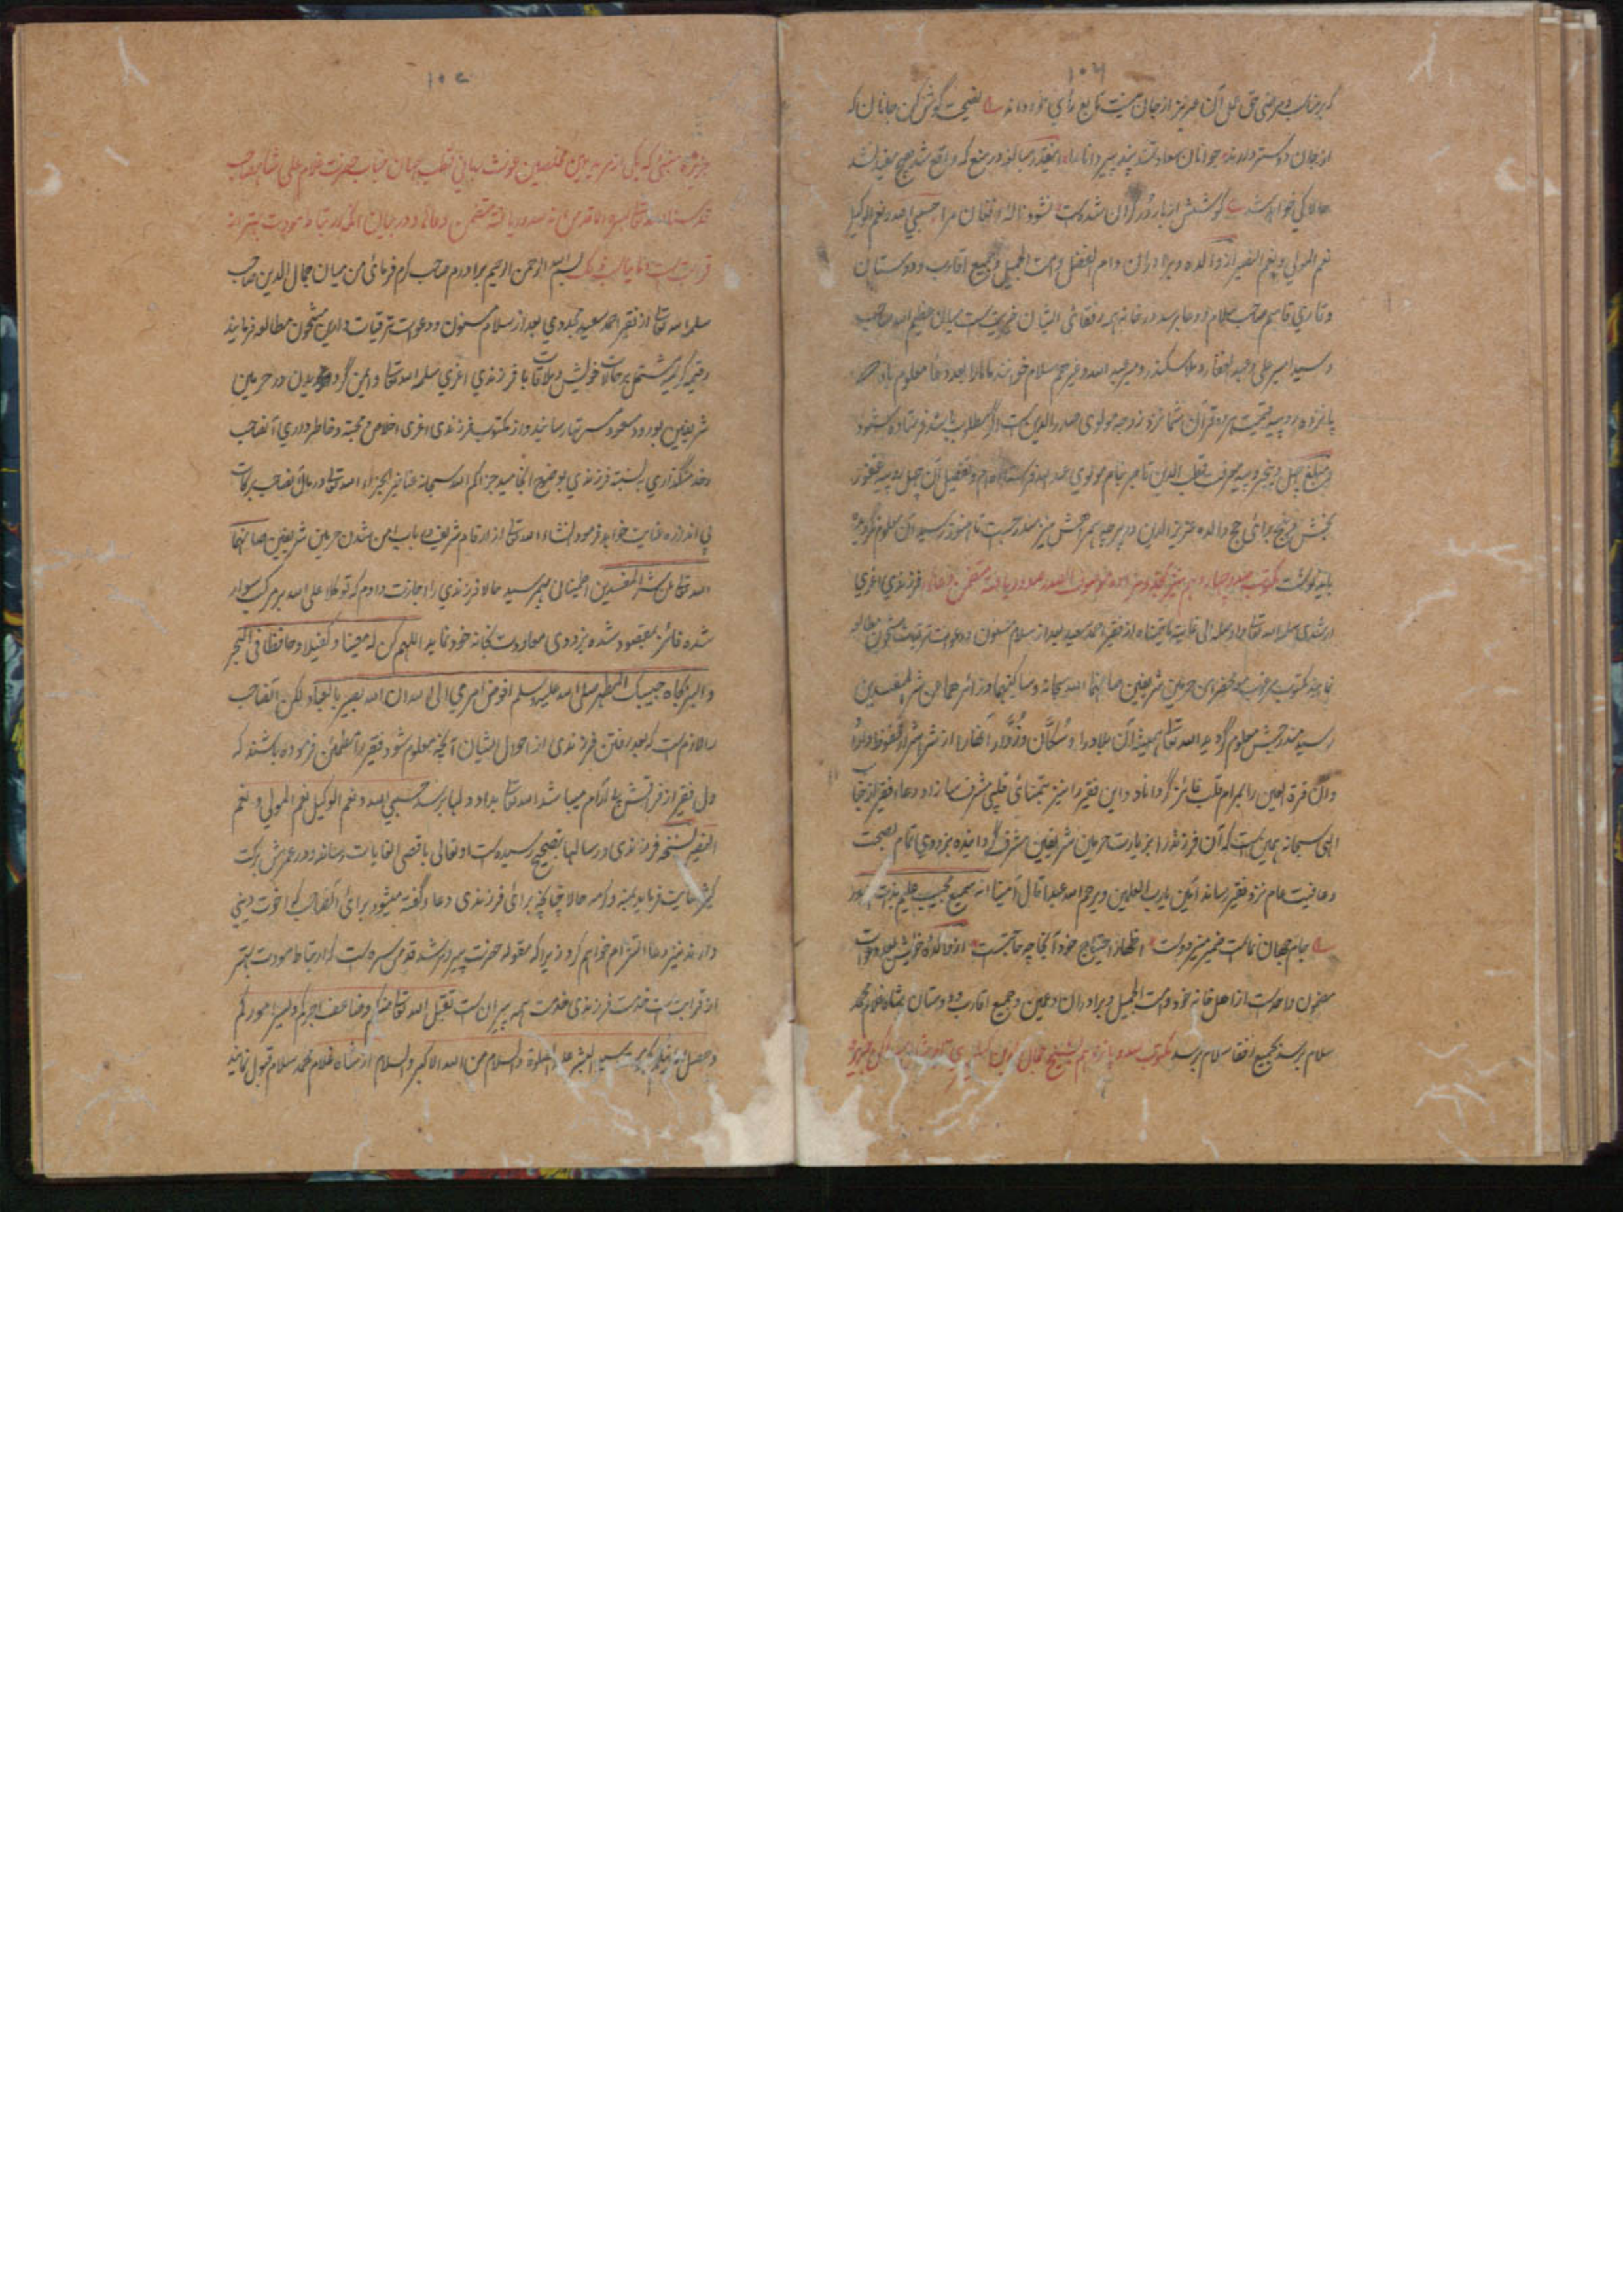 ۱۰۶
که برضاب و مرضی حق عمل آن عزیز از جان نیست تابع رأی خود دانند نصیحت گوش کن جانان که
از جان دوستر دارند جوانان سعادتمند پند پیر دانا را اینقدر مبالغه در منع که واقع شد هیچ مفید نشد
حالا کی خواهد شد کوشش از بار در گران شدست نشنود ناله و افغان مرا حسبی الله نعم الوکیل
نعم المولی و نعم النصیر از والده و برادران و ام الفضل و امت الجمیل و جمیع اقارب و دوستان
و قاری قاسم صاحب سلام و دعا برسد در خانه همه رفقائی ایشان خیریت است میان عظیم الله صاحب
و سید امیر علی و عبد الغفار و ملا سکندر و میر عبد الله و غیرهم سلام خوانند
پانزده روپیه قیمت قرآن شما نزد زوجه مولوی صدر الدین است اگر مطلوب باشد فرستاده شود
مبلغ چهل و پنج روپیه معرفت قطب الدین تاجر بنام مولوی عبد الله فرستاده ام و تفصیل آن چهل روپیه غفور
بخش برائی حج والده عزیز الدین
باید نوشت مکتوب صد و چهاردهم صدور یافته متضمن دعا فرزندی اعزی
ارشدی سلمه الله تعالی از فقیر احمد سعید بعد از سلام مسنون و دعوت ترقیات مشحون مطالعه
نمایند مکتوب مرغوب حرمین شریفین صانهما الله سبحانه و ساکنیهما و زائرهما من شر المفسدین
رسید مندرجش معلوم گردید الله تعالی همیشه آن بلاد را و سکان و زوار آنها را از شر اشرار محفوظ دارد
و آن قرة العین را بمرام قلب فائز گرداناد و این فقیر را نیز بتمنائی قلبی مشرف سازاد دعاء فقیر از جناب
الهی سبحانه همین است که آن فرزند را بزیارت حرمین شریفین مشرف گردانیده بزودی تمام بصحت
و عافیت عام نزد فقیر رساند آمین یا رب العلمین و یرحم الله عبدا قال آمینا انه سمیع مجیب علیم بذات الصدور
جام جهان نماست ضمیر منیر دوست اظهار احتیاج خود آنجا چه حاجتست از والده خویش بعد دعوات
مضمون واحد است از اهل خانه خود و امت الجمیل و برادران و عمین و جمیع اقارب و دوستان شاه غلام محمد
سلام برسد بجمیع رفقا سلام برسد مکتوب صد و پانزدهم بشیخ جمال الدین
۱۰۷
که یکی از مریدین مخلصین غوث ربانی قطب جهان جناب حضرت غلام علی شاه صاحب
صدور یافته متضمن دعاها و در بیان آنکه ارتباط مودت بهتر از
قرابت است بسم الله الرحمن الرحیم برادرم صاحب کرم فرمائی من میان جمال الدین صاحب
سلمه الله تعالی از فقیر احمد سعید مجددی بعد از سلام مسنون و دعوت ترقیات دارین مشحون مطالعه فرمایند
رقیمه کریمه مشتمل بر حالات خویش و ملاقات با فرزندی اعزی سلمه الله تعالی و امن گردیدن در حرمین
شریفین بورود مسعود مسرتها رسانید و از مکتوب فرزندی اعزی اخلاص و محبت و خاطرداری آنصاحب
و خدمتگذاری به نسبت فرزندی بوضوح انجامید جزاکم الله سبحانه عنا خیر الجزاء الله تعالی در مال آنصاحب برکات
بی اندازه عنایت خواهد فرمود انشاء الله تعالی از ارقام شریف در باب امن شدن حرمین شریفین صانهما
الله تعالی من شر المفسدین اطمینانی بهم رسید حالا فرزندی را اجازت دادم که توکلا علی الله بر مرکب سوار
شده فائز بمقصود شده بزودی معاودت بخانه خود نماید اللهم کن له معینا و کفیلا و حافظا فی البحر
و البر بجاه حبیبک المطهر صلی الله علیه و سلم افوض امری الی الله ان الله بصیر بالعباد لکن آنصاحب
را لازم است که بعد رفتن فرزندی از احوال ایشان آنچه معلوم شود فقیر را مطمئن فرموده باشند که
دل فقیر از فراقش بی آرام میباشد الله تعالی بداد دلها برسد حسبی الله و نعم الوکیل نعم المولی و نعم
النصیر نسخه فرزندی و رسالها بتصحیح رسیده است او تعالی باقصی الغایات رساند و در عمرش برکت
کثیر عنایت فرماید بمنه و کرمه حالا چنانچه برائی فرزندی دعاء گفته میشود برائی آنصاحب که اخوت دینی
دارند نیز دعا التزام خواهم کرد زیرا که مقوله حضرت پیر و مرشد قدس سره است که ارتباط مودت بهتر
از قرابت است خدمت فرزندی خدمت همه پیران است تقبل الله تعالی منکم و ضاعف اجرکم و یسر امورکم
و السلام من الله الاکبر و السلام از شاه غلام محمد سلام قبول نمایند